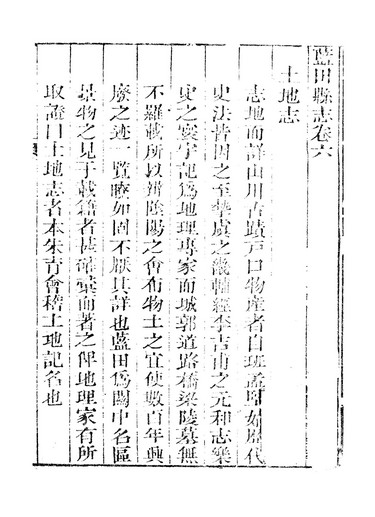 藍田縣志卷六
土地志
志地而詳山川古蹟戸口物產者自班孟堅始歷代
史法皆因之至摯虞之畿輔經李吉甫之元和志樂
史之寰宇記爲地理專家而城郭道路橋梁陵墓無
不羅載所以辨陰陽之會布物土之宜使數百年興
廢之迹一覽瞭如固不厭其詳也藍田爲關中名區
景物之見于載籍者甚確彙而著之俾地理家有所
取證曰土地志者本朱育會稽土地記名也